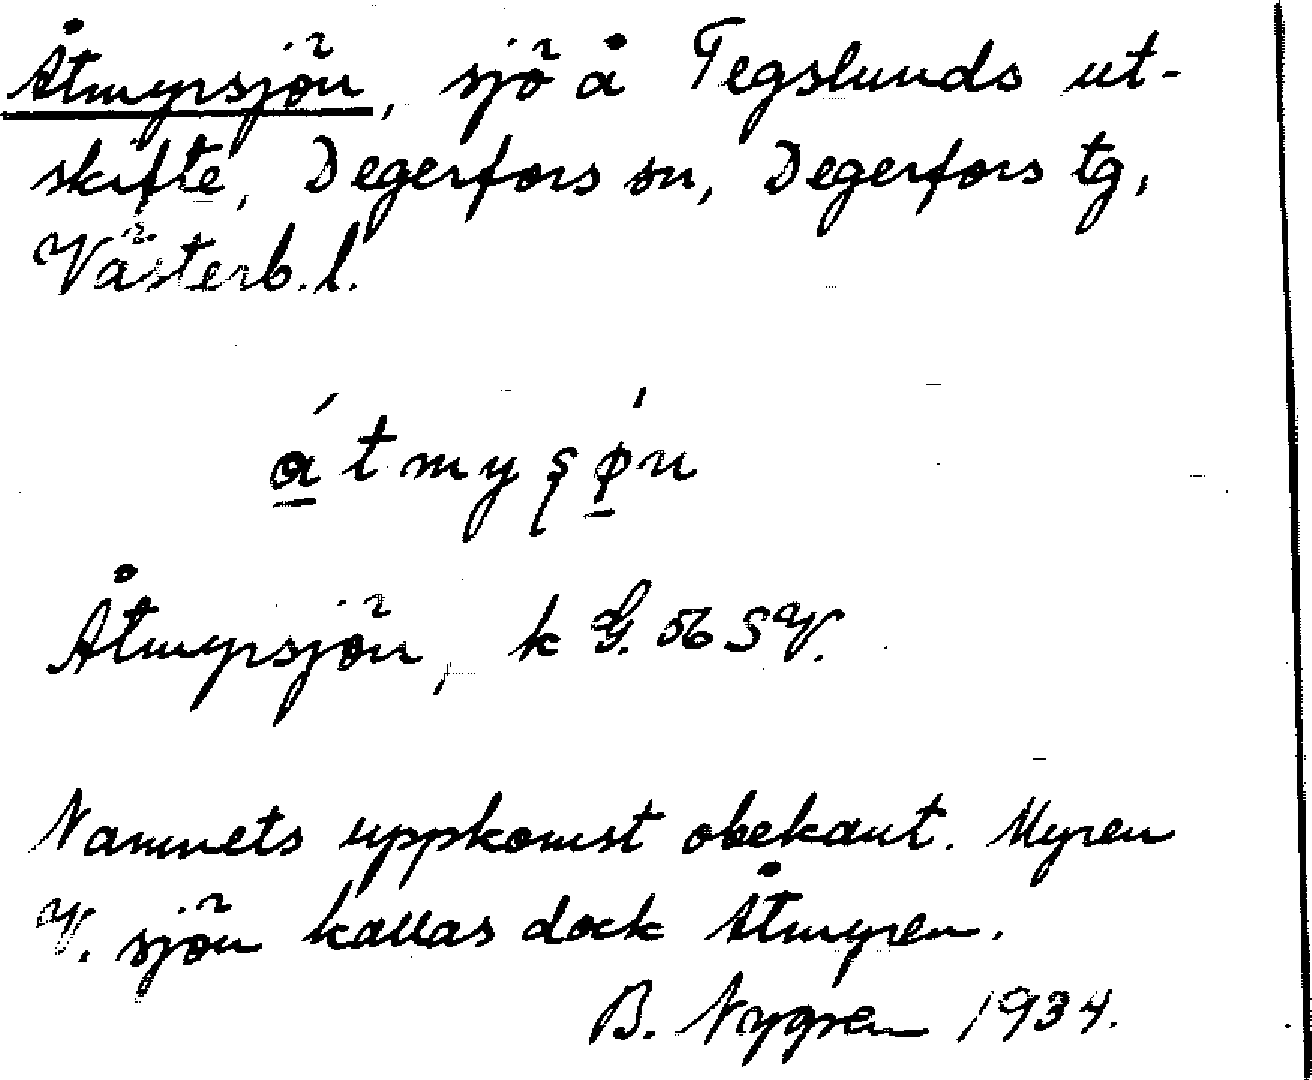 Åtmyrsjön, sjö å Tegslunds ut-
skifte, Degerfors sn, Degerfors tg,
Västerb. l.
Åtmyrsjön, k G. 56 SV.
Namnets uppkomst obekant. Myren
V. sjön kallas dock Åtmyren.
B. Nygren 1934.